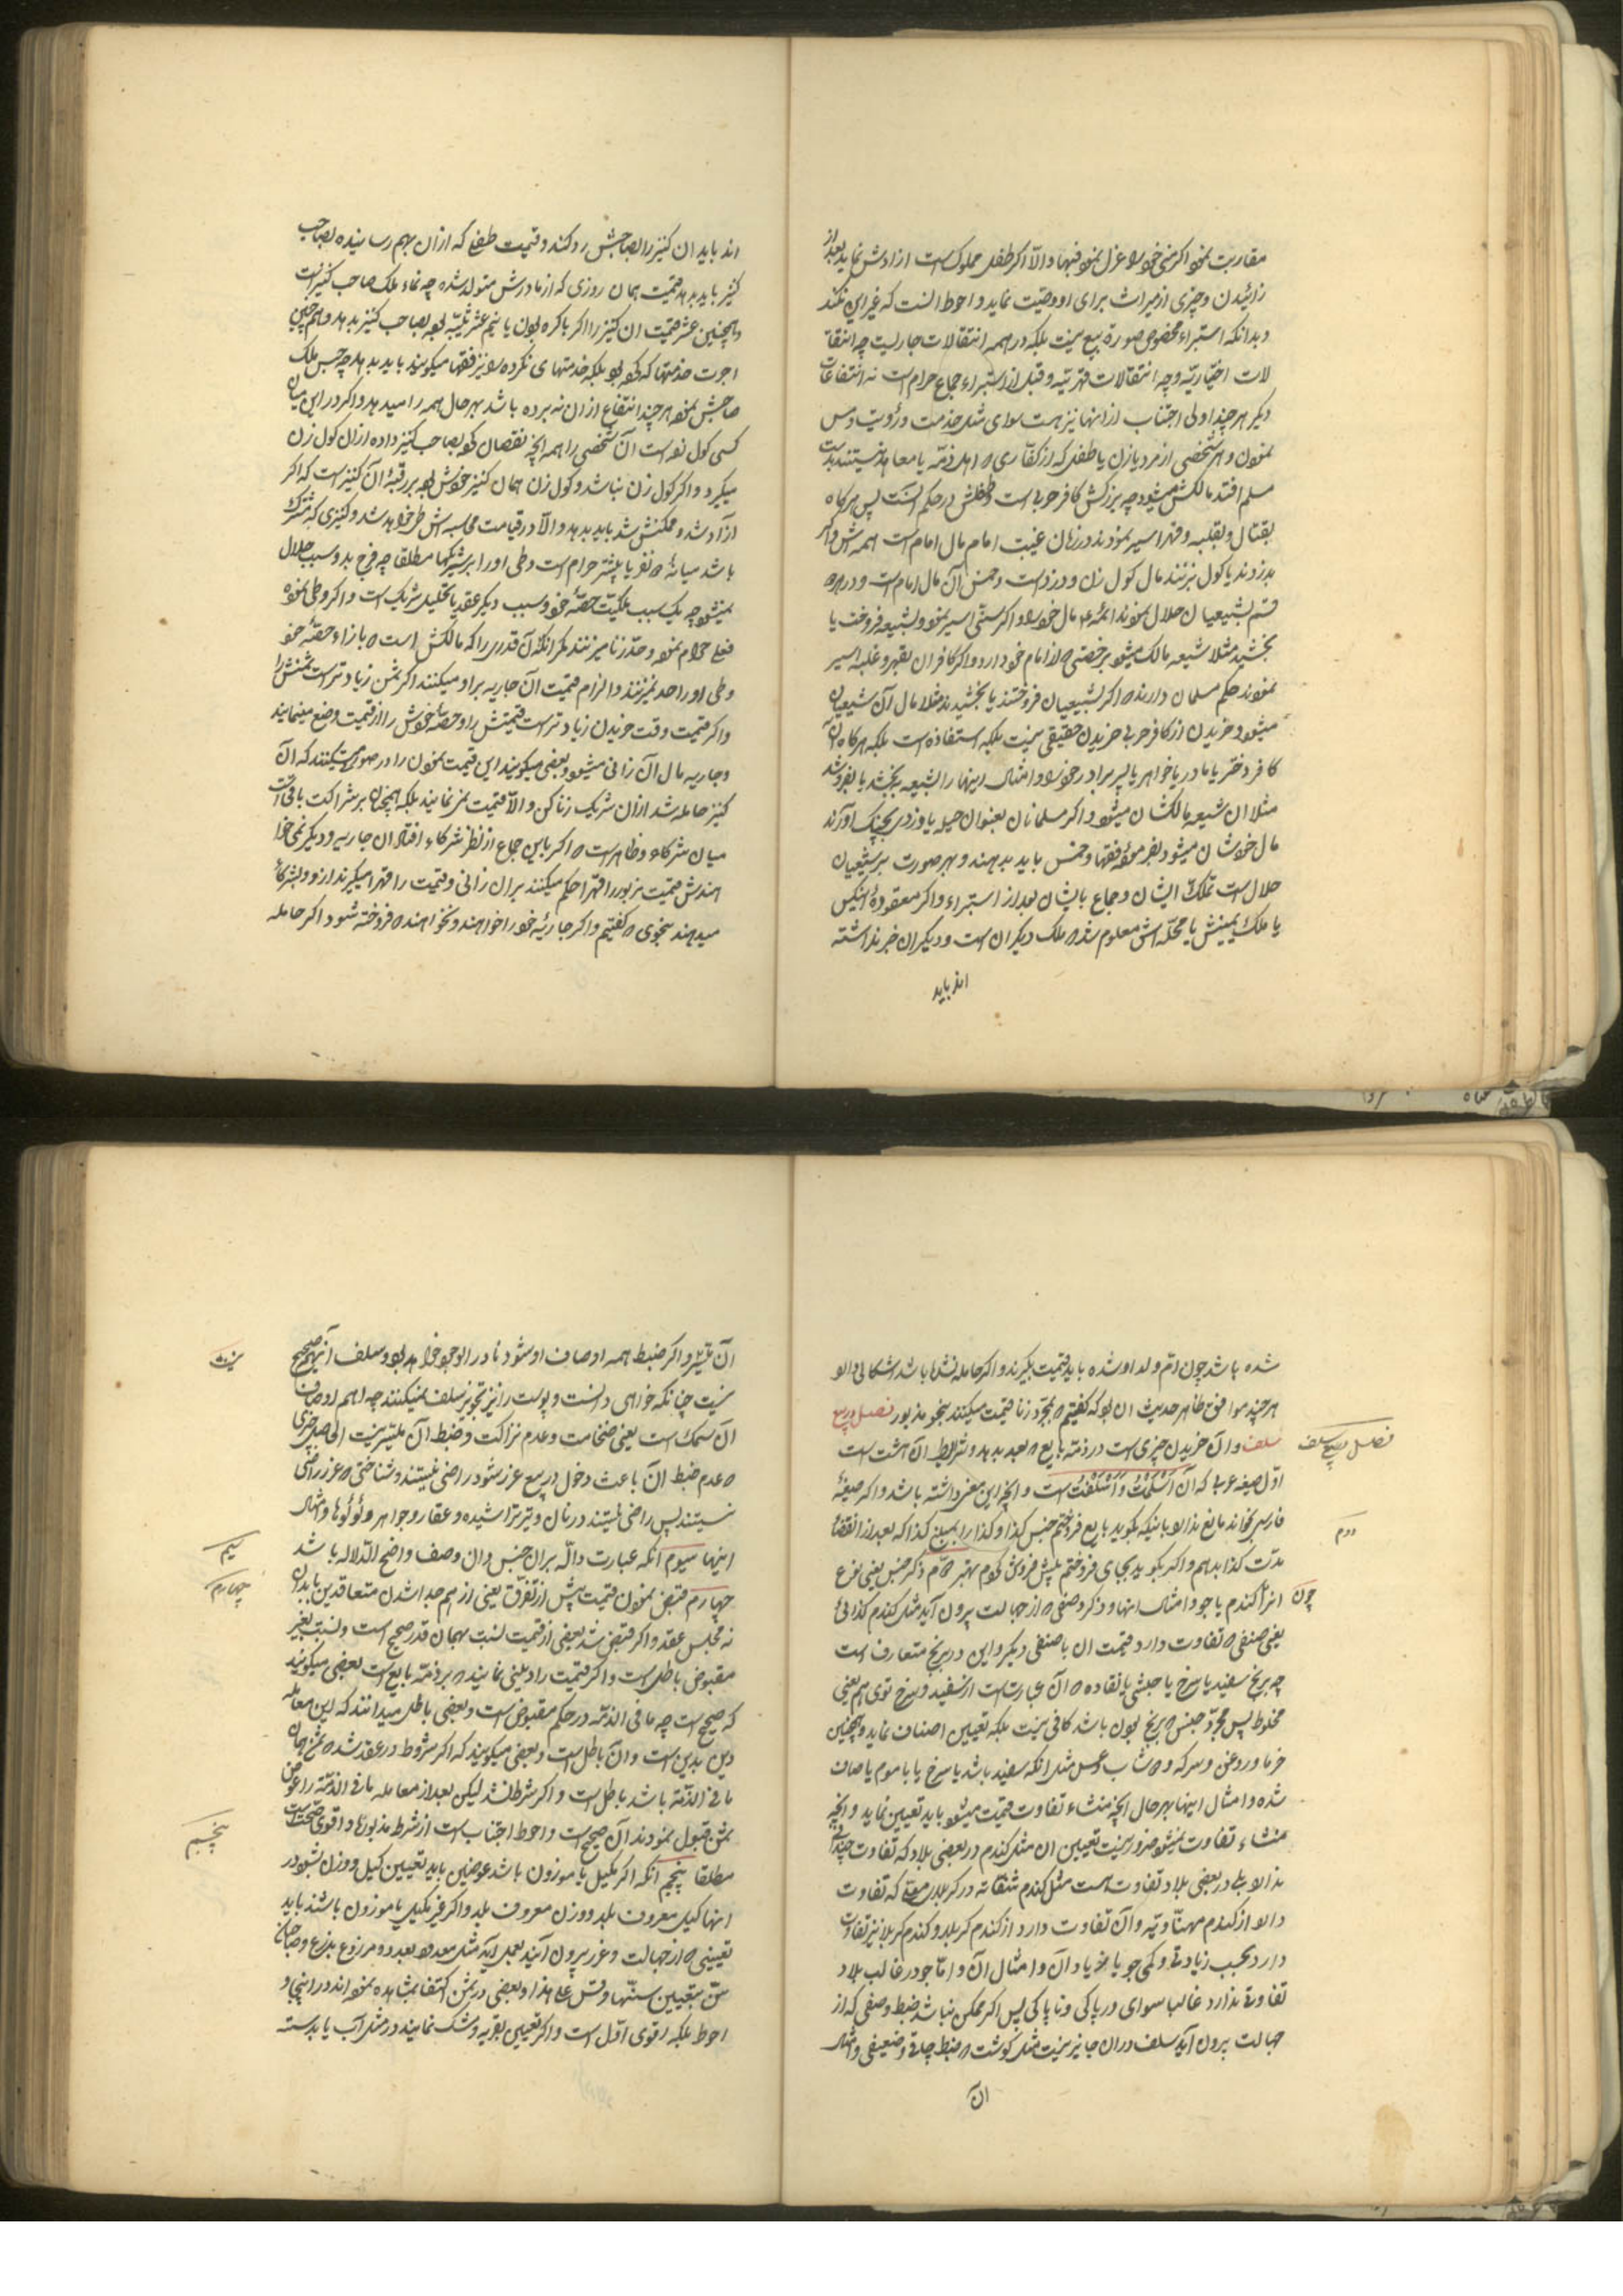 مقاربت نموده اکر منی خود را عزل نموده فبها و الّا اکر طفل مملوکست ازادش نماید بعد از
زائیدن و چیزی از میراث برای او وصیّت نماید و احوط انست که غیر این نکند
و بدانکه استبراء مخصوص صورة بیع نیست بلکه در همه انتقالات جاریست چه انتقا
لات اختیاریّه و چه انتقالات قهریّه و قبل از استبراء جماع حرام است نه انتفاعات
دیکر هر چند اولی اجتناب از انها نیز هست سوای مثل خدمت و رؤیت و مس
نمودن و هر شخصی از مرد یا زن یا طفل که از کفّاری ه اهل ذمّه یا معاهد نیستند بدست
مسلم افتد مالکش میشود چه بزرکش کافر حربی است و طفلش در حکم انست پس هر کاه
بقتال و بغلبه و قهر اسیر نمودند در زمان غیبت امام مال امام است همه اش و اکر
بدزدند یا کول بزنند مال کول زن و دزد است و خمس آن مال امام است و در هر ه
قسم بشیعیان حلال نمودند ائمّه ع مال خود را و اکر سنّی اسیر نمود و بشیعه فروخت یا
بخشید مثلا شیعه مالک میشود برخصتی ه از امام خود دارد و اکر کافران بقهر و غلبه اسیر
نمودند حکم مسلمان دارند ه اکر بشیعیان فروختند یا بخشیدند مثلا مال آن شیعیان
میشود و خریدن از کافر حربی خریدن حقیقی نیست بلکه استنقاذ است بلکه هر کاه آن
کافر دختر یا مادر یا خواهر یا پسر برادر خود را و امثال اینها را بشیعه بخشد یا بفروشد
مثلا ان شیعه مالکشان میشود و اکر مسلمانان بعنوان حیله یا دزدی بچنک اورند
مال خودشان میشود بفرموده فقها و خمس باید بدهند و بهر صورت بر شیعیان
حلال است تملّک ایشان و جماع بایشان بعد از استبراء و اکر معقودۀ انیکس
یا ملک یمینش یا محلّله اش معلوم شد ه ملک دیکران است و دیکران خبر نداشته
اند باید
اند باید ان کنیز را بصاحبش رد کند و قیمت طفلی که از ان بهم رسانیده بصاحب
کنیز باید بدهد قیمت همان روزی که از مادرش متولد شده چه نماء ملک صاحب کنیز است
و همچنین عشر قیمت ان کنیز را اکر باکره بود و یا نیم عشر ثیّبه بود بصاحب کنیز بدهد و هم چنین
اجرت خدمتها که کرده بود بلکه خدمتهای نکرده را نیز فقها میکویند باید بدهد چه حبس ملک
صاحبش نموده هر چند انتفاع از ان نه برده باشد بهر حال همه را میدهد و اکر در این میان
کسی کول زده است آن شخصی را همه انچه نقصان کرده بصاحب کنیز داده از ان کول زن
میکیرد و اکر کول زن نباشد و کول زن همان کنیز خودش بود بر رقبۀ آن کنیز است که اکر
آزاد شد و ممکنش شد باید بدهد و الّا در قیامت محاسبه اش خواهد شد و کنیزی که مشترک
باشد میانۀ ه نفر یا بیشتر حرام است وطی او را بر شریکها مطلقا چه فرج بدو سبب حلال
نمیشود چه یک سبب ملکیّت حصّه خود و سبب دیکر عقد یا تحلیل شریک است و اکر وطی نموده
فعل حرام نموده و حدّ زنا میزنند مکر انکه آن قدری را که مالکش است ه بازاء حصّه خود
وطی او را حد نمیزنند و الزام قیمت آن جاریه بر او میکنند اکر ثمن زیادتر است ثمنش را
و اکر قیمت وقت خریدن زیادتر است قیمتش را و حصّۀ خودش را از قیمت وضع مینمایند
و جاریه مال ان زانی میشود و بعضی میکویند این قیمت نمودن را در صورتی میکنند که آن
کنیز حامله شد از ان شریک زنا کن و الّا قیمت نمی نمایند بلکه همچنان بر شراکت باقی است
میان شرکاء و ظاهر است ه اکر باین جماع از نظر شرکاء افتاد ان جاریه و دیکر نمیخوا
هندش قیمت مزبور را قهرا حکم میکنند بر ان زانی و قیمت را قهرا میکیرند از او و بشرکاء
میدهند بنحوی ه کفتیم و اکر جاریۀ خود را خواهند و نخواهند ه فروخته شود اکر حامله
شده باشد چون امّ ولد او شده باید قیمت بکیرند و اکر حامله نشده باشد اشکالی دارد
هر چند موافق ظاهر حدیث ان بود که کفتیم ه بمجرّد زنا قیمت میکنند بنحو مذبور فصل در بیع
سلف و آن خریدن چیزیست در ذمّه بایع ه بعد بدهد و شرایط آن هشت است
فصل بیع سلف
اوّل صیغه عربیه که آن اَسْلَمْتُ وَ اَسْلَفْتُ است و انچه این معنی داشته باشد و اکر صیغۀ
فارسی بخواند مانع ندارد باینکه بکوید بایع فروختم جنس کذا و کذا را بمبلغ کذا که بعد از انقضاء
مدّت کذا بدهم و اکر بکوید بجای فروختم پیش فروش کردم بهتر دوّم ذکر جنس یعنی نوع
دوم
انرا چون کندم یا جو و امثال انها و ذکر وصفی ه از جهالت بیرون آید مثل کندم کذائی
یعنی صنفی ه تفاوت دارد قیمت ان با صنفی دیکر و این در برنج متعارف است
چه برنج سفید یا سرخ یا حبشی یا نقاده ه آن عبارتست از سفید و سرخ توی هم یعنی
مخلوط پس مجرّد جنس ه برنج بودن باشد کافی نیست بلکه تعیین اصناف نماید و همچنین
خرما و روغن و سرکه و ه شاب و عسل مثل انکه سفید باشد یا سرخ یا با موم یا صاف
شده و امثال اینها بهر حال انچه منشاء تفاوت قیمت میشود باید تعیین نماید و انچه
منشاء تفاوت نمیشود ضرور نیست تعیین ان مثل کندم در بعضی بلاد که تفاوت چندانی
ندارد بلی در بعضی بلاد تفاوت است مثل کندم شثاثه در کربلای معلّی که تفاوت
دارد از کندم مهنّاویّه و آن تفاوت دارد از کندم کربلا و کندم کربلا نیز تفاوت
دارد بحسب زیادتی و کمی جو یا خربا و آن و امثال آن و امّا جو در غالب بلاد
تفاوتی ندارد غالبا سوای در پاکی و ناپاکی پس اکر ممکن نباشد ضبط وصفی که از
جهالت بیرون آید سلف در ان جایز نیست مثل کوشت ه ضبط چاقی و ضعیفی و امثال
ان
آن میسّر و اکر ضبط همه اوصاف او شود نادر الوجود خواهد بود و سلف آنهم صحیح
نیست چنانکه خواهی دانست و پوست را نیز تجویز سلف نمیکنند چه اهم اوصاف
ان سمک است یعنی ضخامت و عدم نزاکت و ضبط آن میسّر نیست الحاصل چیزی
ه عدم ضبط آن باعث دخول در بیع غرر شود راضی نیستند و شناختی ه غرر راضی
نیستند پس راضی نیستند در نال و تیر تراشیده و عقار و جواهر و لؤلؤها و امثال
اینها سیوم انکه عبارت دالّه بر ان جنس و ان وصف واضح الدّلاله باشد
سیم
چهارم قبض نمودن قیمت پیش از تفرّق یعنی از هم جدا شدن متعاقدین بابدان
چهارم
نه مجلس عقد و اکر قبض شد بعضی از قیمت نسبت بهمان قدر صحیح است و نسبت بغیر
مقبوض باطل است و اکر قیمت را دینی نمایند ه بر ذمّه بایع است بعضی میکویند
که صحیح است چه ما فی الذمّه در حکم مقبوض است و بعضی باطل میدانند که این معامله
دین بدین است و آن باطل است و بعضی میکویند که اکر مشروط در عقد شد ه ثمن همان
ما فی الذمّه باشد باطل است و اکر شرط نشد لیکن بعد از معامله ما فی الذمّه را عوض
ثمن قبول نمودند آن صحیح است و احوط اجتناب است از شرط مذبوره و اقوی صحّت است
مطلقا پنجم انکه اکر مکیل یا موزون باشد عوضین باید تعیین کیل و وزن بشود در
پنجم
انها کیل معروف بلد و وزن معروف بلد و اکر غیر مکیل یا موزون باشند باید
تعیینی ه از جهالت و غرر بیرون آیند بعمل آید مثل معدود بعدد و مزروع بذرع و حیوان
سنّ بتعیین سنّها و قس علی هذا و بعضی در ثمن اکتفا بمشاهده نموده اند در اینجا و
احوط بلکه اقوی اوّل است و اکر تعیین بقربه و مشک نمایند در مثل آب یا بدسته